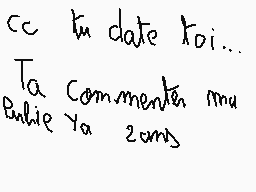 cc tu date toi...
Ta commenter ma
Public Ya 2 ans